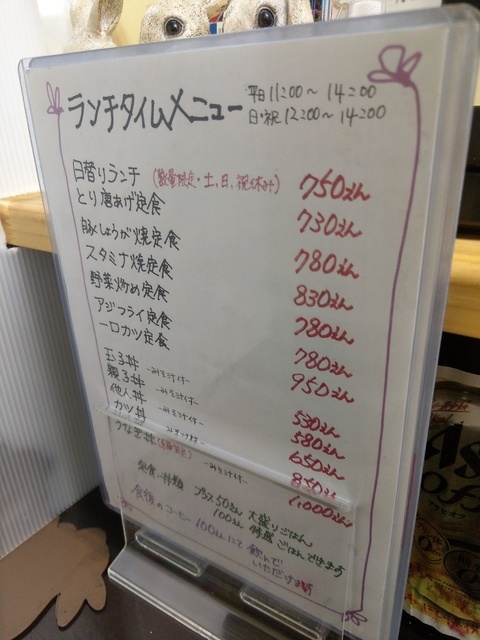 ランチタイムメニュー
平日 11:00～14:00
日・祝 12:00～14:00
日替りランチ (数量限定・土、日、祝お休み) 750えん
とり唐あげ定食 730えん
豚しょうが焼定食 780えん
スタミナ焼定食 830えん
野菜炒め定食 780えん
アジフライ定食 780えん
一口カツ定食 950えん
玉子丼 -みそ汁付- 530えん
親子丼 -みそ汁付- 580えん
他人丼 -みそ汁付- 650えん
カツ丼 -みそ汁付- 850えん
うなぎ丼 -みそ汁付- 1,000えん
定食・丼類 プラス50えん 大盛りごはん
100えん 特盛ごはんできます
食後のコーヒー 100えんにて飲んで
いただけます